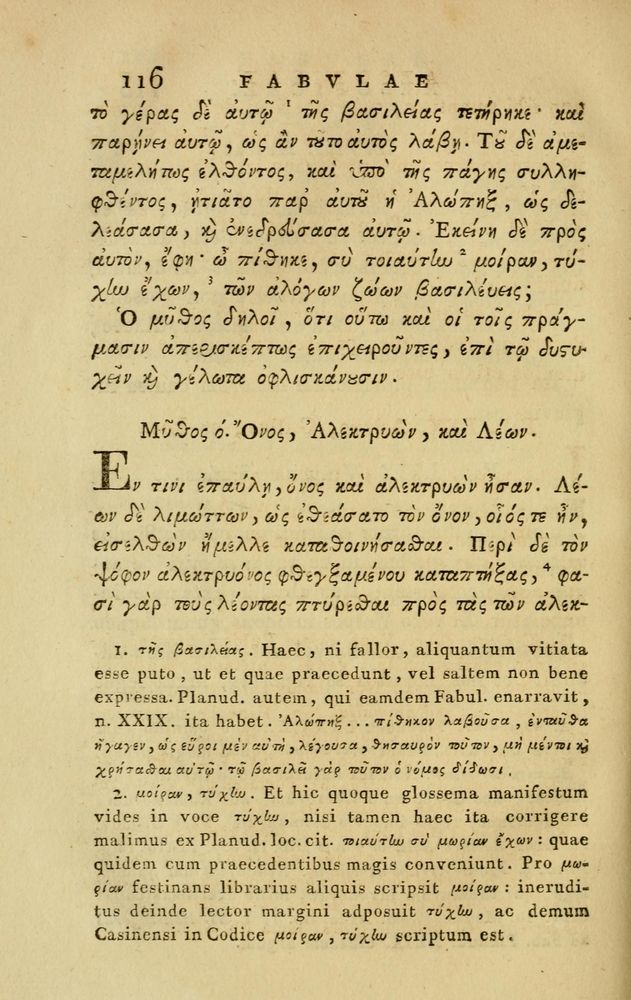 116 FABVLAE
το γέρας δὲ ἀυτῷ ¹ τῆς βασιλείας τετήρηκε· καὶ
παρῄνει ἀυτῷ, ὡς ἂν τουτο αυτὸς λάβῃ. Τοῦ δὲ ἀμε-
ταμελήτως ἐλθόντος, καὶ ὑπὸ τῆς πάγης συλλη-
φθέντος, ᾐτιᾶτο παρ ἀυτοῦ ἡ Ἀλώπηξ, ὡς δε-
λεάσασα, καὶ ἐνεδρέυσασα ἀυτῷ. Ἐκείνη δὲ πρὸς
ἀυτὸν, ἔφη· ὦ πίθηκε, σὺ τοιαύτην ² μοίραν, τύ-
χην ἔχων, ³ τῶν ἀλόγων ζώων βασιλέυεις;
Ὁ μῦθος δηλοῖ, ὅτι οὕτω καὶ οἱ τοῖς πράγ-
μασιν ἀπερισκέπτως ἐπιχειροῦντες, ἐπὶ τῷ δυστυ-
χεῖν καὶ γέλωτα οφλισκάνουσιν.
Μῦθος ό. Ὄνος, Ἀλεκτρυὼν, καὶ Λέων.
Εν τινι ἐπαύλῃ, ὄνος καὶ ἀλεκτρυὼν ἦσαν. Λέ-
ων δὲ λιμώττων, ὡς ἐθεάσατο τὸν ὄνον, οἷός τε ἦν,
εἰσελθὼν ἤμελλε καταθοινήσασθαι. Περὶ δὲ τὸν
ψόφον ἀλεκτρυόνος φθεγξαμένου καταπτήξας, ⁴ φα-
σὶ γὰρ τοὺς λέοντας πτύρεσθαι πρὸς τὰς τῶν ἀλεκ-
1. τῆς βασιλείας. Haec, ni fallor, aliquantum vitiata
esse puto, ut et quae praecedunt, vel saltem non bene
expressa. Planud. autem, qui eamdem Fabul. enarravit,
n. XXIX. ita habet. Ἀλώπηξ... πίθηκον λαβοῦσα, ἐνταῦθα
ἤγαγεν, ὡς εὕροι μὲν αὐτὴ, λέγουσα, θησαυρὸν τοῦτον, μὴ μέντοι καὶ
χρήσασθαι αυτῷ· τῷ βασιλεῖ γὰρ τοῦτον ὁ νόμος δίδωσι.
2. μοίραν, τύχην. Et hic quoque glossema manifestum
vides in voce τύχην, nisi tamen haec ita corrigere
malimus ex Planud. loc. cit. τοιαύτην σὺ μωρίαν ἔχων: quae
quidem cum praecedentibus magis conveniunt. Pro μω-
ρίαν festinans librarius aliquis scripsit μοίραν: inerudi-
tus deinde lector margini adposuit τύχην, ac demum
Casinensi in Codice μοίραν, τύχην scriptum est.